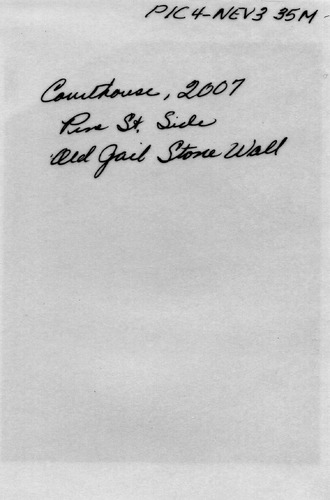 PIC4-NEV3 35M
Courthouse, 2007
Pine St. Side
Old Jail Stone Wall